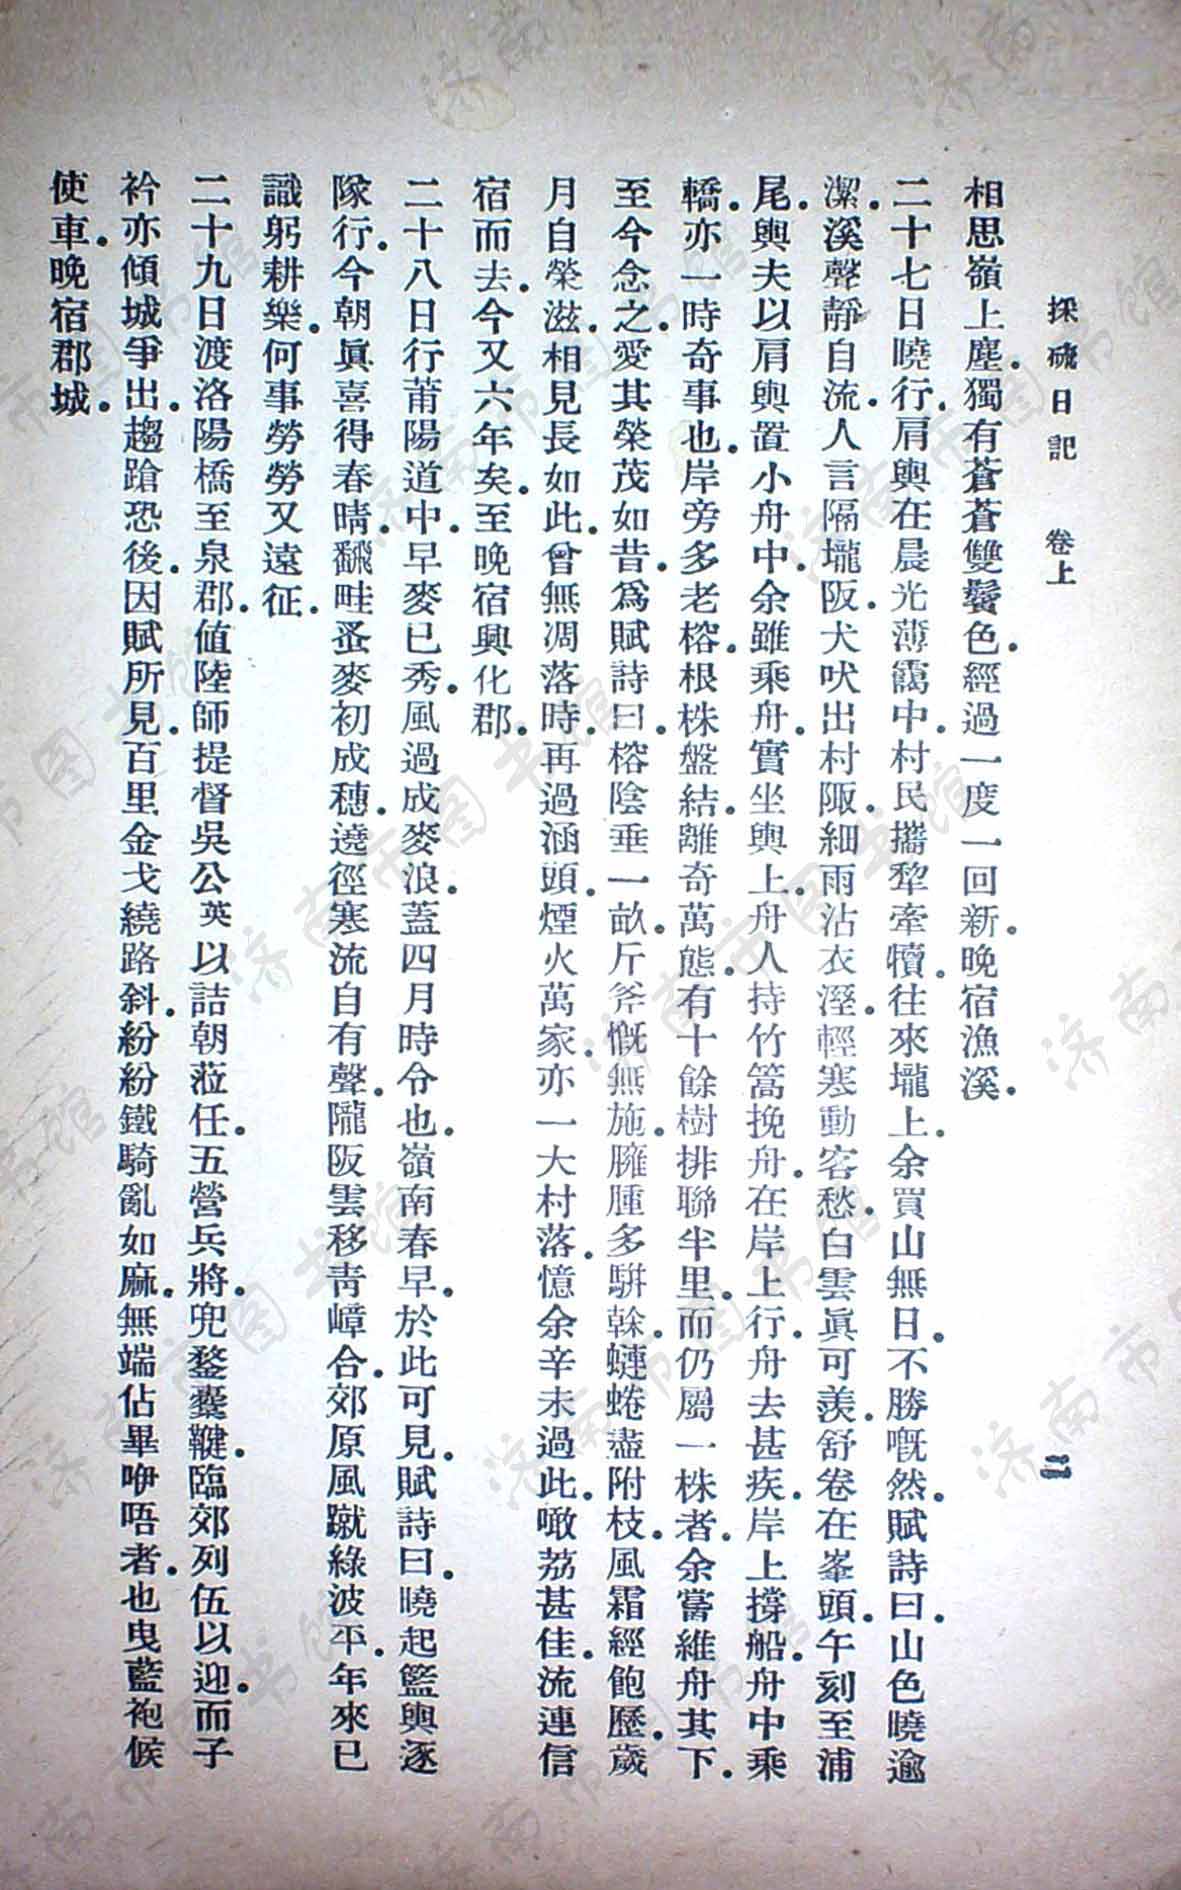 採硫日記　卷上　二
相思嶺上塵。獨有蒼蒼雙鬢色。經過一度一回新。晚宿漁溪。
二十七日曉行。肩輿在晨光薄靄中。村民攜犂牽犢。往來壠上。余買山無日。不勝嘅然。賦詩曰。山色曉逾
潔。溪聲靜自流。人言隔壠阪。犬吠出村陬。細雨沾衣溼。輕寒動客愁。白雲眞可羨。舒卷在峯頭。午刻至浦
尾。輿夫以肩輿置小舟中。余雖乘舟。實坐輿上。舟人持竹篙挽舟。在岸上行。舟去甚疾。岸上撐船。舟中乘
轎。亦一時奇事也。岸旁多老榕。根株盤結。離奇萬態。有十餘樹排聯半里。而仍屬一株者。余嘗維舟其下。
至今念之。愛其榮茂如昔。爲賦詩曰。榕陰垂一畝。斤斧慨無施。臃腫多騈榦。蜿蜷盡附枝。風霜經飽歷。歲
月自榮滋。相見長如此。曾無凋落時。再過涵頭。煙火萬家。亦一大村落。憶余辛未過此。噉荔甚佳。流連信
宿而去。今又六年矣。至晚宿興化郡。
二十八日行莆陽道中。早麥已秀。風過成麥浪。蓋四月時令也。嶺南春早。於此可見。賦詩曰。曉起籃輿逐
隊行。今朝眞喜得春晴。飜畦蚤麥初成穗。遶徑寒流自有聲。隴阪雲移靑嶂合。郊原風蹴綠波平。年來已
識躬耕樂。何事勞勞又遠征。
二十九日渡洛陽橋至泉郡。値陸師提督吳公英以詰朝蒞任。五營兵將。兜鍪櫜鞬。臨郊列伍以迎。而子
衿亦傾城爭出。趨蹌恐後。因賦所見。百里金戈繞路斜。紛紛鐵騎亂如麻。無端佔畢咿唔者。也曳藍袍候
使車。晚宿郡城。